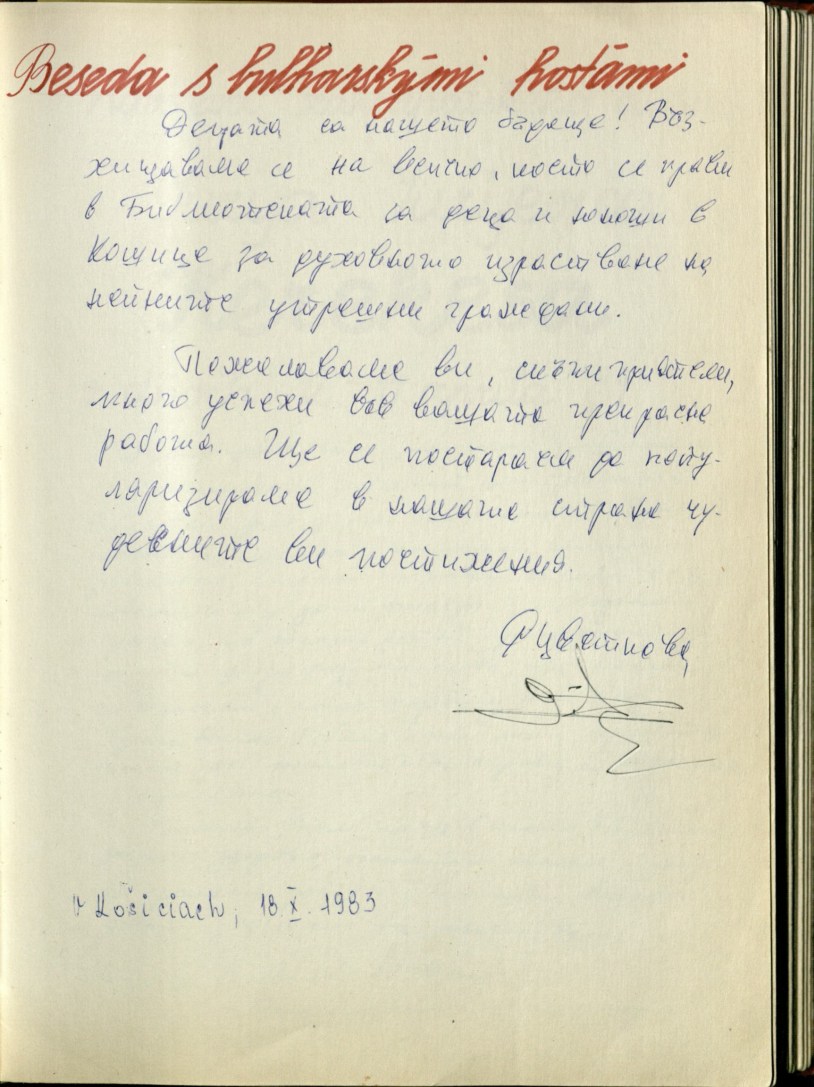 Beseda s bulharskými hosťami
Децата са нашето бъдеще! Въз-
хищаваме се на всичко, което се прави
в Библиотеката за деца и юноши в
Кошице за духовното израстване на
нейните утрешни граждани.
Пожелаваме ви, скъпи приятели,
много успехи във вашата прекрасна
работа. Ще се постараем да попу-
ляризираме в нашата страна чу-
десните ви постижения.
Цветкова
V Košiciach, 18. X. 1983